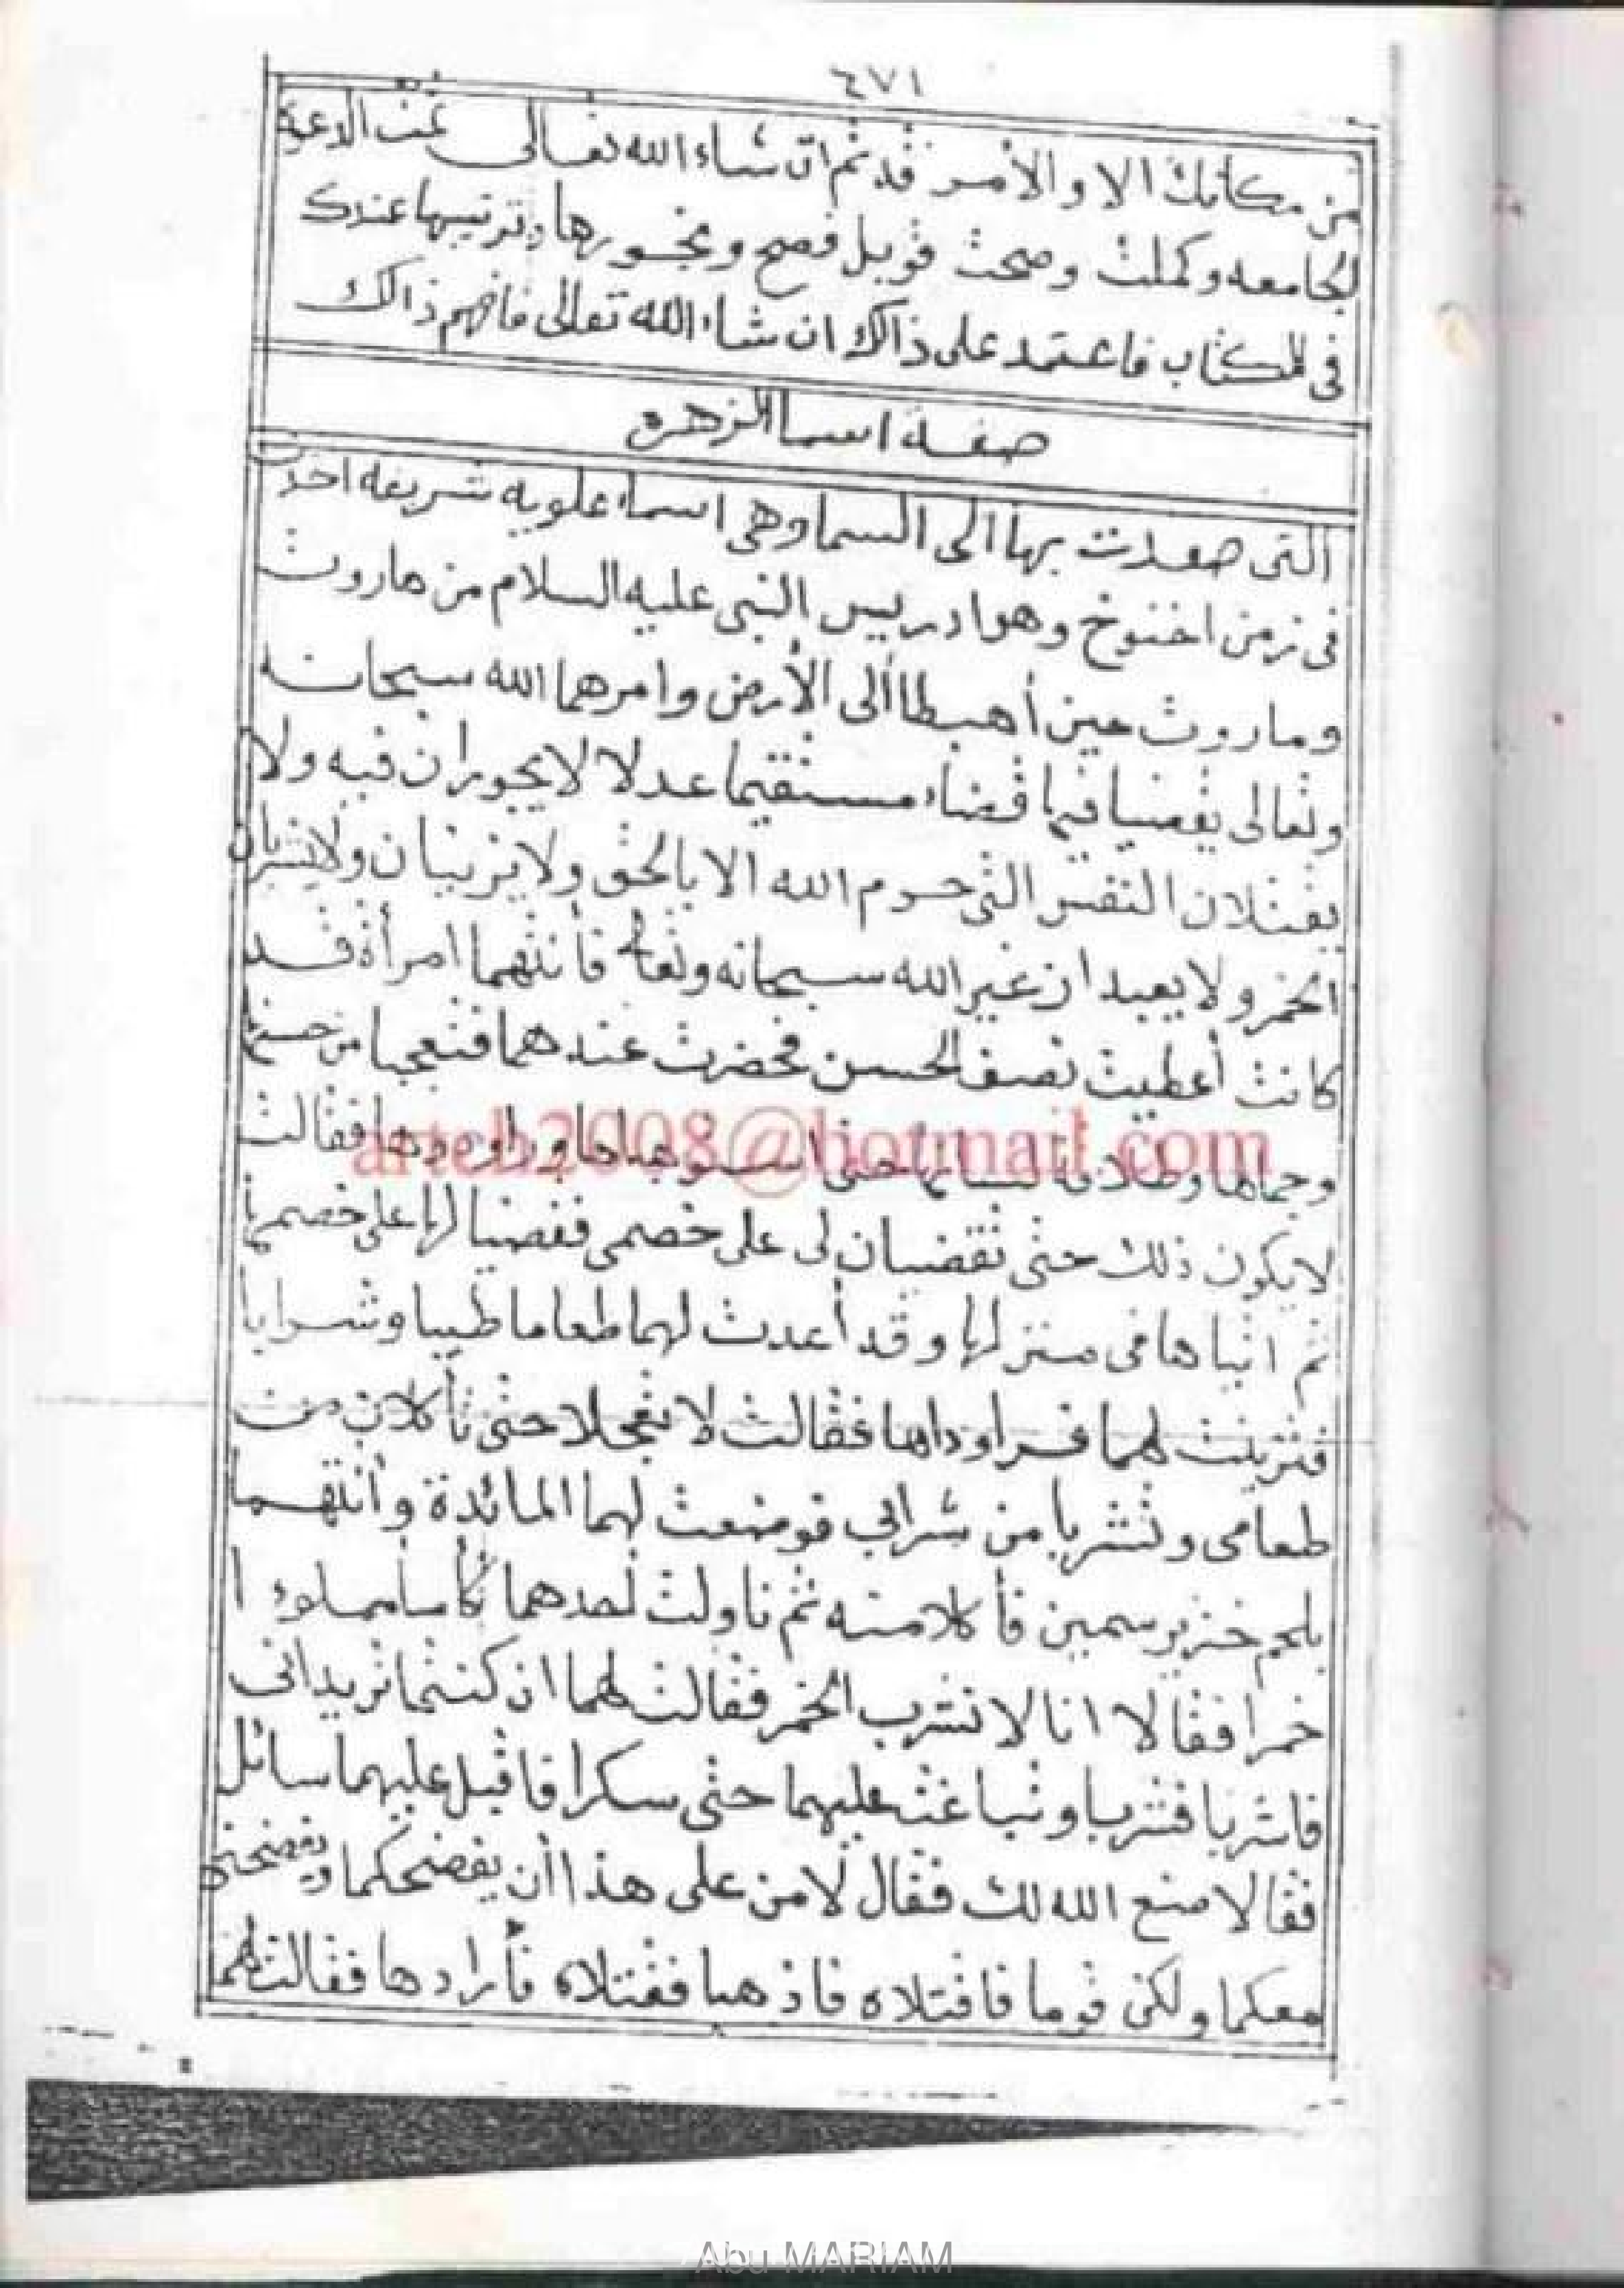 ٤٧١
من مكانك الا والأمر قد تم ان شاء الله تعالى تمت الدعوة
الجامعه وكملت وصحت قوبل فصح وبخورها وترتيبها عندك
فى الكتاب فاعتمد على ذالك ان شاء الله تعالى فافهم ذالك
صفة اسما الزهره
التى صعدت بها الى السما وهى اسماء علويه شريفه اخذت
فى زمن اخنوخ وهو ادريس النبى عليه السلام من هاروت
وماروت حين أهبطا ألى الأرض وامرهما الله سبحانه
وتعالى يقضيا فيها قضاء مستقيما عدلا لا يجوران فيه ولا
يقتلان النفس التى حرم الله الا بالحق ولا يزنيان ولا يشربان
الخمر ولا يعبدان غير الله سبحانه وتعالى فأتتهما امرأة قد
كانت أعطيت نصف الحسن فحضرت عندهما فتعجبا من حسنها
وجمالها وطلاقة لسانها حتى وراودوها فقالت
لا يكون ذلك حتى تقضيان لى على خصمى فقضيا لها على خصمها
ثم اتياها فى منزلها وقد أعدت لهما طعاما طيبا وشرابا
فتزينت لهما فراوداها فقالت لا تعجلا حتى تأكلان من
طعامى وتشربا من شرابي فوضعت لهما المائدة وأتتهما
بلحم خنزير سمين فأكلا منه ثم ناولت أحدهما كأسا مملوء ا
خمرا فقالا انا لا نشرب الخمر فقالت لهما ان كنتما تريدانى
فاشربا فشربا وتباغته عليهما حتى سكرا فاقبل عليهما سائل
فقالا صنع الله لك فقال لامن على هذا أن يفضحكما ويفضحنى
معكما ولكن قوما فاقتلاه فاذهبا فقتلاه فأرادها فقالت لهما
arteb2008@hotmail.com
Abu MARIAM